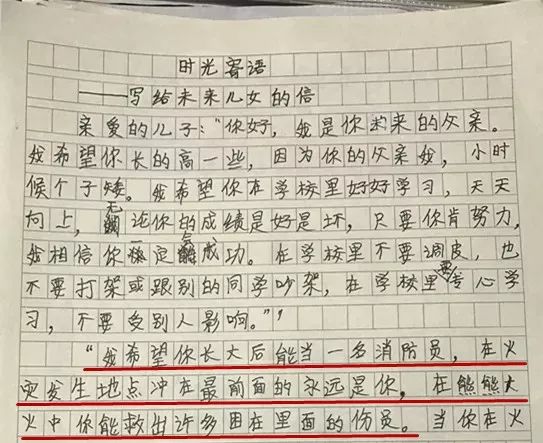 时光寄语
——写给未来儿女的信
亲爱的儿子：“你好，我是你未来的父亲。
我希望你长的高一些，因为你的父亲我，小时
候个子矮。我希望你在学校里好好学习，天天
向上，无论你的成绩是好是坏，只要你肯努力，
我相信你一定会成功。在学校里不要调皮，也
不要打架或跟别的同学吵架，在学校里要专心学
习，不要受别人影响。”
“我希望你长大后能当一名消防员，在火
突发生地点冲在最前面的永远是你，在熊熊大
火中你能救出许多困在里面的伤员。当你在火